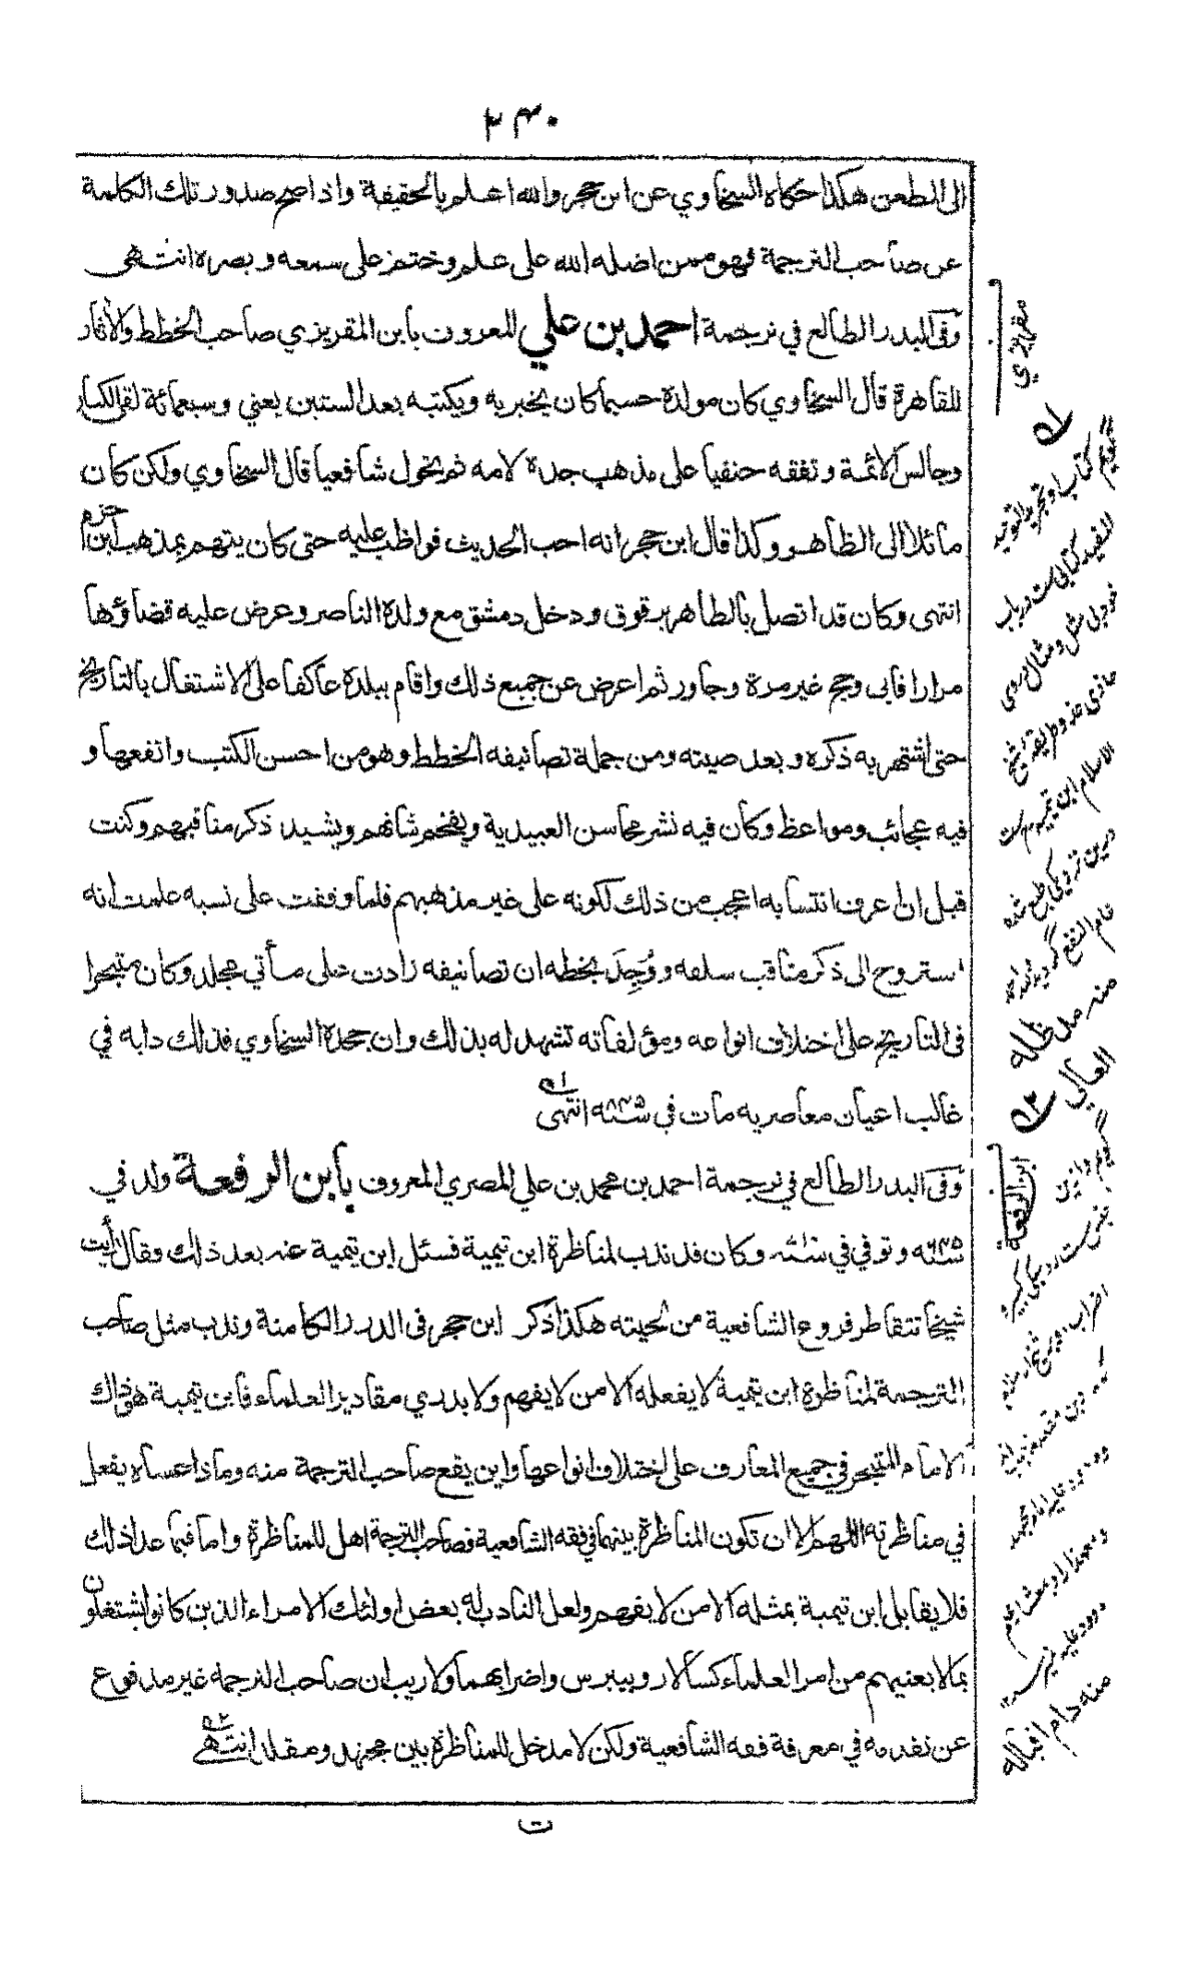 ٢٣٠
الى الطعن هكذا حكاه السخاوي عن ابن حجر والله اعلم بالحقيقة واذا صح صدور تلك الكلمة
عن صاحب الترجمة فهو ممن اضله الله على علم وختم على سمعه وبصره انتهى
وفى البدر الطالع في ترجمة احمد بن علي المعروف بابن المقريزي صاحب الخطط والأثار
للقاهرة قال السخاوي كان مولده حسبما كان يخبر به ويكتبه بعد الستين يعني وسبعمائة لقى الكبار
وجالس الائمة وتفقه حنفيا على مذهب جده لامه ثم تحول شافعيا قال السخاوي ولكن كان
مائلا الى الظاهر وكذا قال ابن حجر انه احب الحديث فواظب عليه حتى كان يتهم بمذهب ابن حزم
انتهى وكان قد اتصل بالظاهر برقوق ودخل دمشق مع ولده الناصر وعرض عليه قضاؤها
مرارا فابى وحج غير مرة وجاور ثم اعرض عن جميع ذلك واقام ببلده عاكفا على الاشتغال بالتاريخ
حتى اشتهر به ذكره وبعد صيته ومن جملة تصانيفه الخطط وهو من احسن الكتب وانفعها و
فيه عجائب ومواعظ وكان فيه نشر محاسن العبيدية ويفخم شانهم ويشيد ذكر مناقبهم وكنت
قبل ان اعرف انتسابه اعجب من ذلك لكونه على غير مذهبهم فلما وقفت على نسبه علمت انه
استروح الى ذكر مناقب سلفه ووُجِدَ بخطه ان تصانيفه زادت على مأتي مجلد وكان متبحرا
فى التاريخ على اختلاف انواعه ومؤلفاته تشهد له بذلك وان جحده السخاوي فذلك دابه في
غالب اعيان معاصريه مات في سنة ٨٤٥ه انتهى
وفى البدر الطالع في ترجمة احمد بن محمد بن علي المصري المعروف بابن الرفعة ولد في
سنة ٦٤٥ه وتوفي في سنة وكان قد ندب لمناظرة ابن تيمية فسئل ابن تيمية عنه بعد ذلك فقال رأيت
شيخا تتقاطر فروع الشافعية من لحيته هكذا ذكر ابن حجر فى الدرر الكامنة وندب مثل صاحب
الترجمة لمناظرة ابن تيمية لا يفعله الا من لا يفهم ولا يدري مقادير العلماء فابن تيمية هو ذاك
الامام المتبحر في جميع المعارف على اختلاف انواعها واين يقع صاحب الترجمة منه وماذا عساه يفعل
في مناظرته اللهم الا ان تكون المناظرة بينهما في فقه الشافعية فصاحب الترجمة اهل للمناظرة واما فيما عدا ذلك
فلا يقابل ابن تيمية بمثله الا من لا يفهم ولعل النادب له بعض اولئك الامراء الذين كانوا يشتغلون
بما لا يعنيهم من امر العلماء كسالار وبيبرس واضرابهما ولا ريب ان صاحب الترجمة غير مدفوع
عن تقدمه في معرفة فقه الشافعية ولكن لا مدخل للمناظرة بين مجتهد ومقلد انتهى
ت
مقريزي
گويم كتاب او تجريد التوحيد
المفيد كتابى ست در باب
الاسلام ابن تيميه
منه مد ظله
العالي
ابن الرفعة
منه دام اقباله